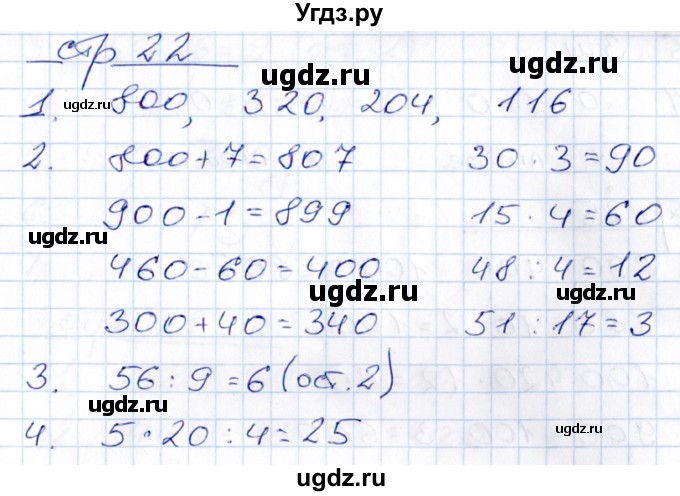 Угдз.ру
стр 22
ugdz.ru
1. 800, 320, 204, 116
ugdz.ru
ugdz.ru
2. 800+7=807 30·3=90
900-1=899 15·4=60
ugdz.ru
ugdz.ru
460-60=400 48:4=12
ugdz.ru
300+40=340 51:17=3
ugdz.ru
3. 56:9=6(ост.2)
ugdz.ru
4. 5·20:4=25
ugdz.ru
ugdz.ru